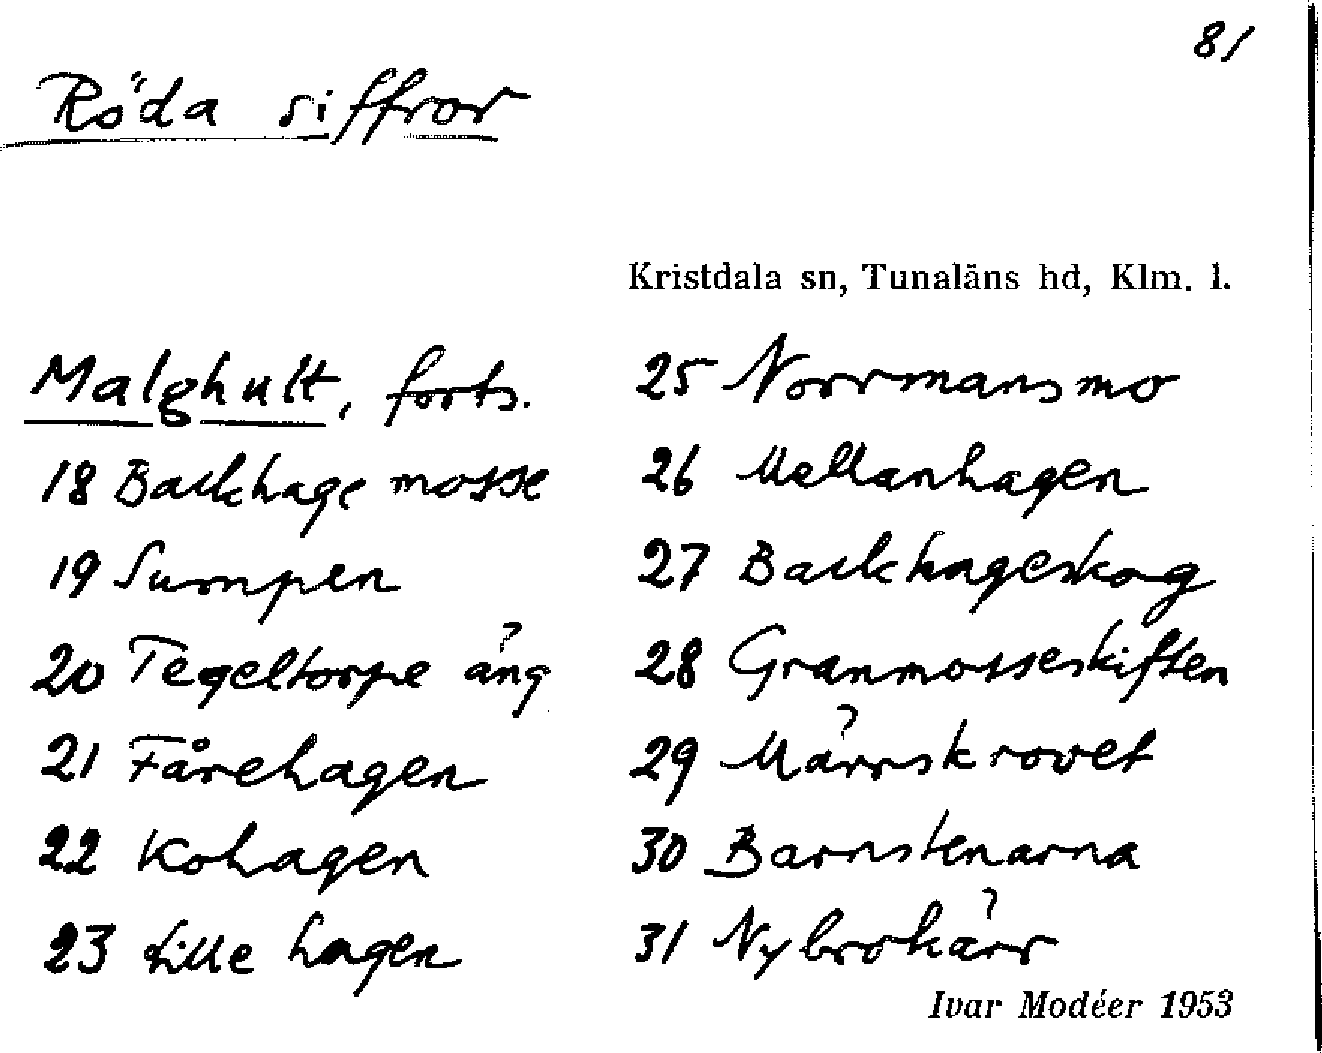 81
Röda siffror
Kristdala sn, Tunaläns hd, Klm. l.
Malghult, forts.
18 Backhage mosse
19 Sumpen
20 Tegeltorpe äng
21 Fårehagen
22 Kohagen
23 Lille hagen
25 Norrmansmo
26 Mellanhagen
27 Backhageskog
28 Granmosseskiften
29 Märrskrovet
30 Barnstenarna
31 Nybrokärr
Ivar Modéer 1953